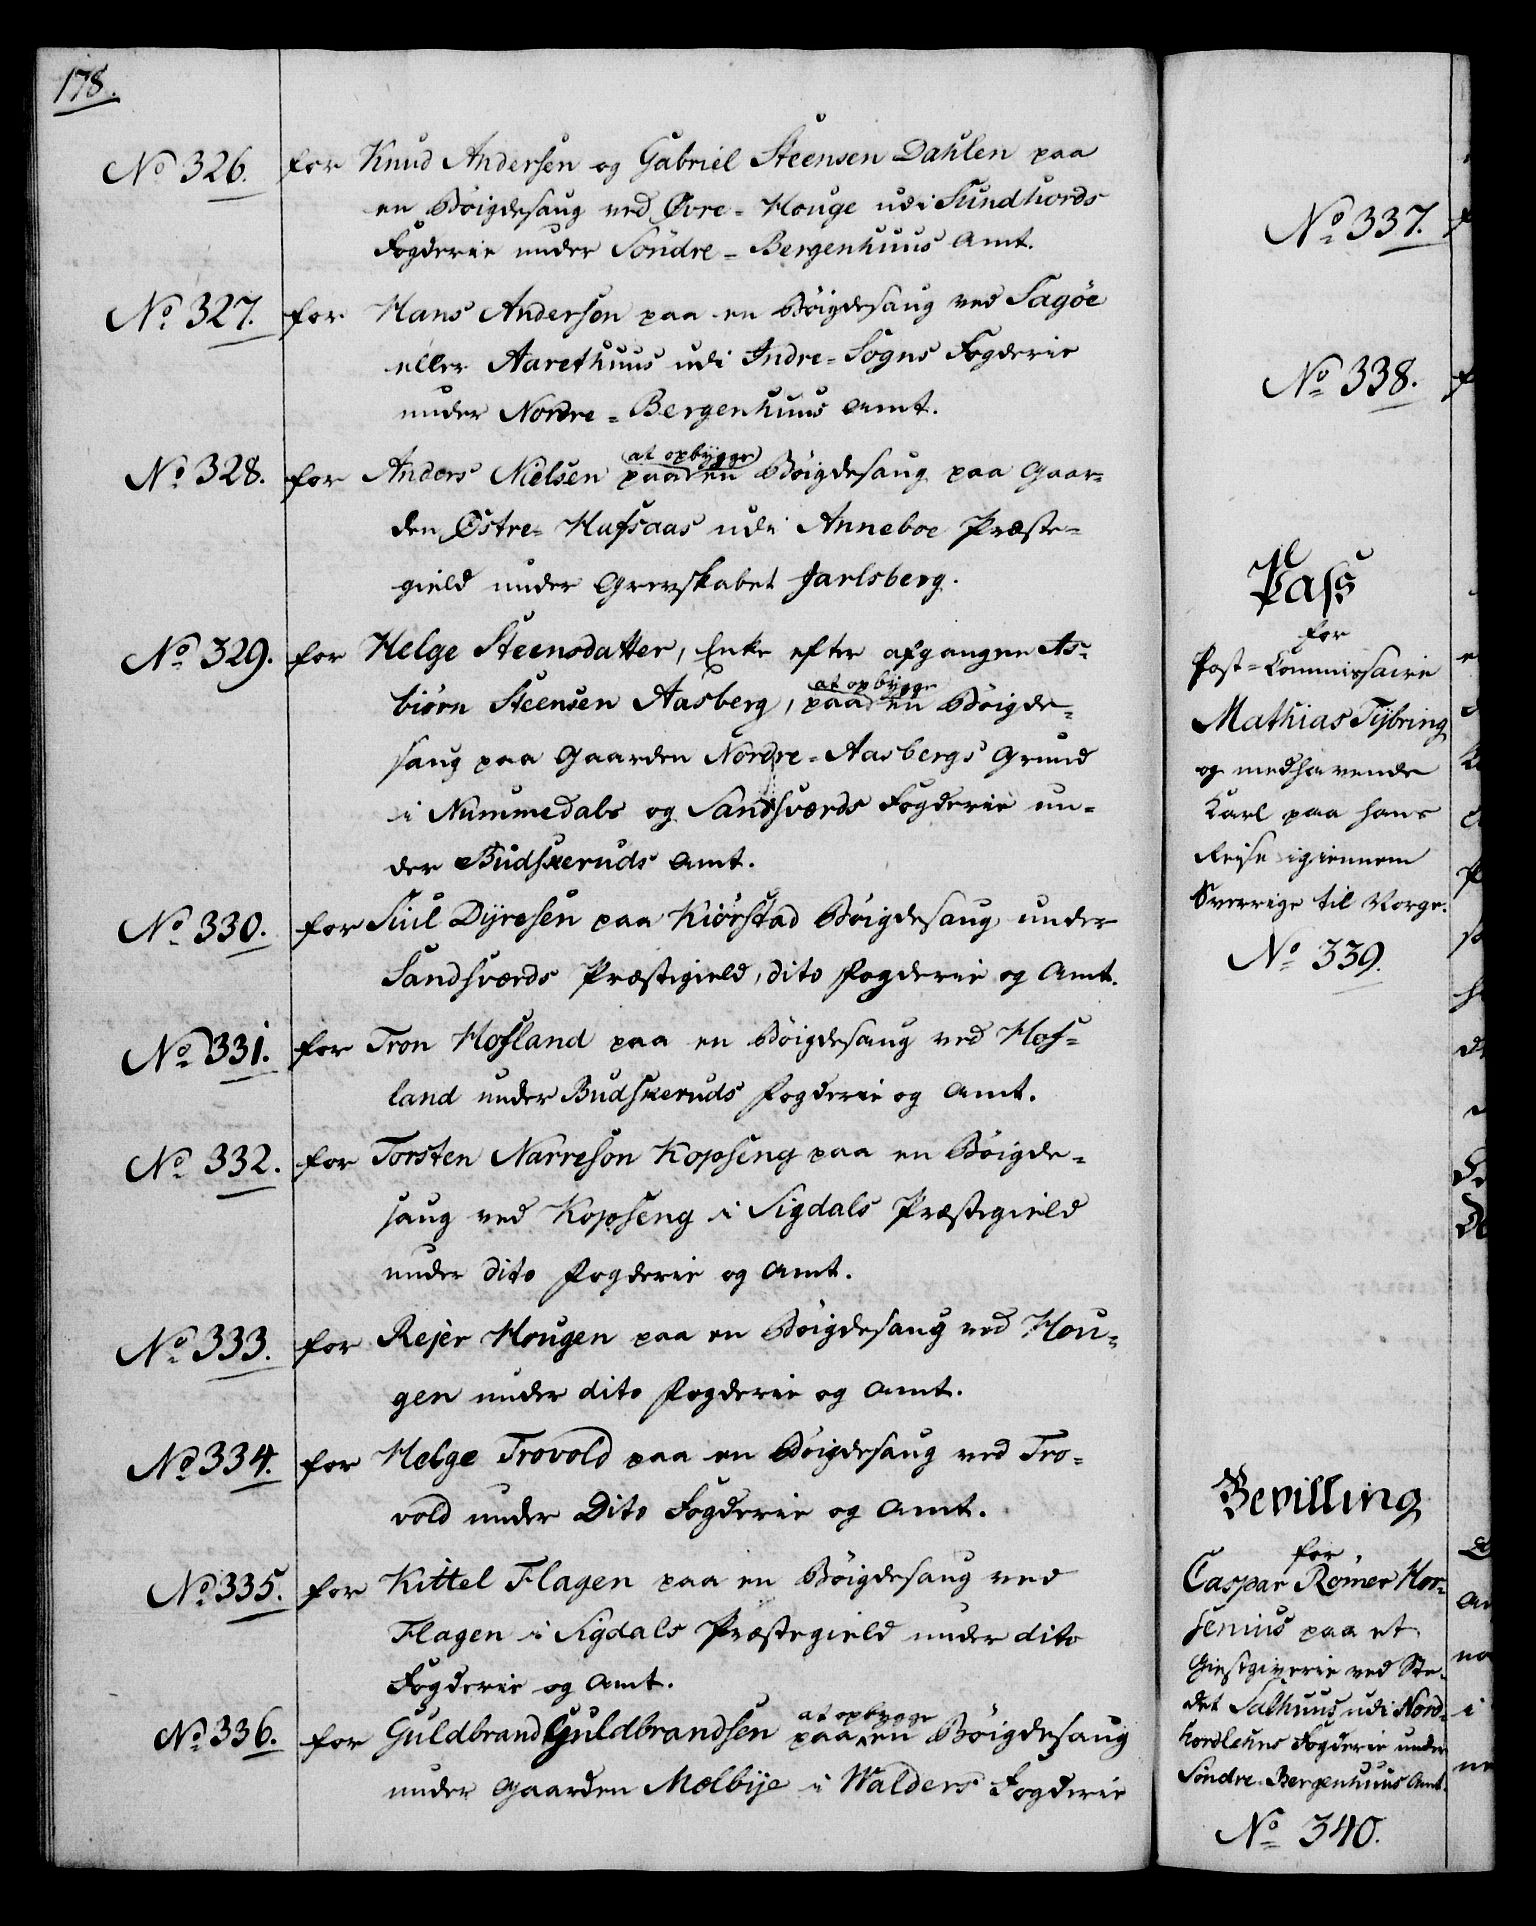 178.
No 326. for Knud Andersen og Gabriel Steensen Dahlen paa
en Böigdesaug ved Øvre-Houge udi Sundhords
Fogderie under Söndre-Bergenhuus Amt.
No 327. for Hans Andersen paa en Böigdesaug ved Sagöe
eller Aarethuus udi Indre-Sogns Fogderie
under Nordre-Bergenhuus Amt.
No 328. for Anders Nielsen paa (at opbygge) en Böigdesaug paa Gaar-
den Østre-Hafsaas udi Anneboe Præste-
gield under Grevskabet Jarlsberg.
No 329. for Helge Steensdatter, Enke efter afgangne As-
biörn Steensen Aasberg, paa at opbygge en Böigde-
saug paa Gaarden Nordre-Aasbergs Grund
i Nummedals og Sandsværds Fogderie un-
der Budskeruds Amt.
No 330. for Siul Dyresen paa Kiörstad Böigdesaug under
Sandsværds Præstegield, dito Fogderie og Amt.
No 331. for Tron Hofland paa en Böigdesaug ved Hof-
land under Budskeruds Fogderie og Amt.
No 332. for Torsten Narreson Kopseng paa en Böigde-
saug ved Kopseng i Sigdals Præstegield
under dito Fogderie og Amt.
No 333. for Rejer Hougen paa en Böigdesaug ved Hou-
gen under dito Fogderie og Amt.
No 334. for Helge Trovold paa en Böigdesaug ved Tro-
vold under Dito Fogderie og Amt.
No 335. for Kittel Flagen paa en Böigdesaug ved
Flagen i Sigdals Præstegield under dito
Fogderie og Amt.
No 336. for Guldbrand Guldbrandsen paa at opbygge en Böigdesaug
under Gaarden Mælbye i Walders Fogderie
No 337.
No 338.
Pass
for
Post-Commissaire
Mathias Tybring
og medhavende
Karl paa hans
Reise igiennem
Sverrige til Norge.
No 339.
Bevilling
for
Caspar Römer Hor-
senius paa et
Giestgiverie ved Ste-
det Salhuus udi Nord-
hordlehns Fogderie under
Söndre-Bergenhuus Amt.
No 340.